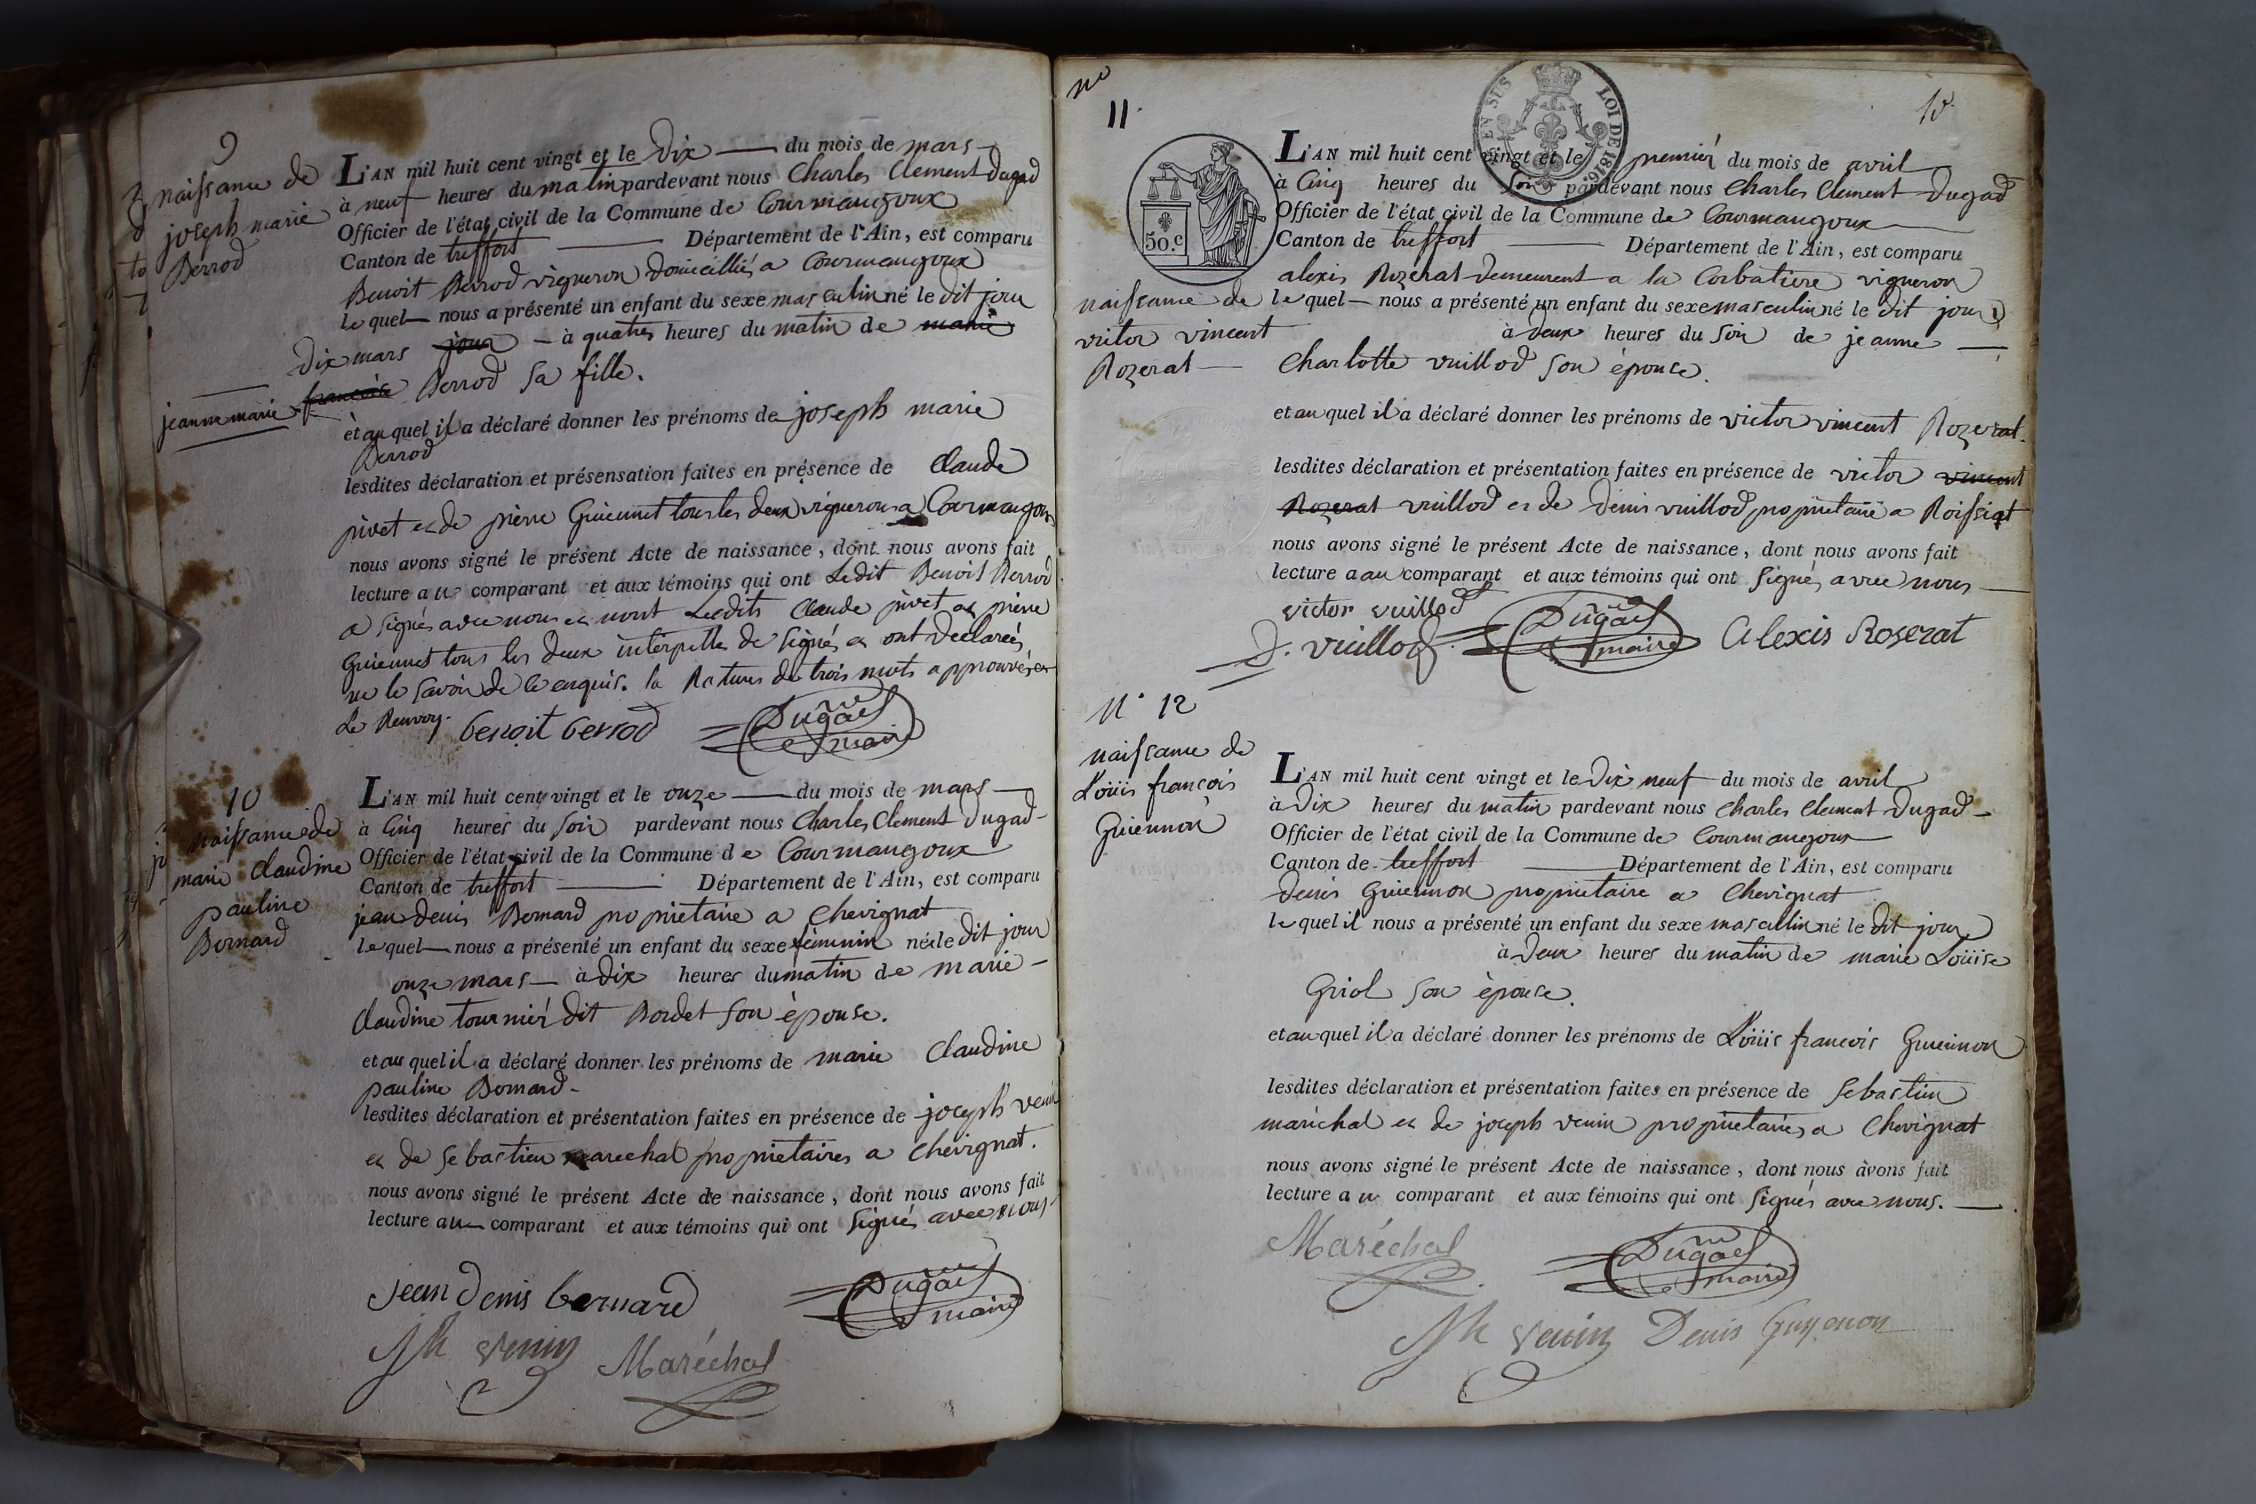 9
naissance de
joseph marie
Berrod
L'AN mil huit cent vingt et le Dix du mois de mars
à neuf heures du matin pardevant nous Charles Clement Dugad
Officier de l'état civil de la Commune de Courmangoux
Canton de treffort Département de l'Ain, est comparu
Benoit Berrod vigneron domicillié a Courmangoux
lequel nous a présenté un enfant du sexe masculin né le dit jour
dix mars jour à quatre heures du matin de marie
jeanne marie francoise Berrod sa fille.
et au quel il a déclaré donner les prénoms de joseph marie
Berrod
lesdites déclaration et présensation faites en présence de Claude
pivet et de pierre Guiennet tous les deux vignerons a Courmangoux
nous avons signé le présent Acte de naissance, dont nous avons fait
lecture au comparant et aux témoins qui ont Ledit Benoit Berrod
a signés avec nous et nont Lesdits Claude pivet et pierre
Guiennet tous les deux interpellés de signés et ont déclarés
ne le savoir de ce enquis. la Rature de trois mots approuvés et
Le Renvoy.
benoit berrod Dugad maire
10
naissance de
marie Claudine
pauline
Bornard
L'AN mil huit cent vingt et le onze du mois de mars
à Cinq heures du soir pardevant nous Charles Clement Dugad
Officier de l'état civil de la Commune de Courmangoux
Canton de treffort Département de l'Ain, est comparu
jean denis Bornard proprietaire a Chevignat
lequel nous a présenté un enfant du sexe féminin née le dit jour
onze mars à dix heures du matin de marie
Claudine tournier dit Bordet son épouse.
et au quel il a déclaré donner les prénoms de marie Claudine
pauline Bornard
lesdites déclaration et présentation faites en présence de joseph venin
et de sebastien marechal proprietaires a Chevignat.
nous avons signé le présent Acte de naissance, dont nous avons fait
lecture au comparant et aux témoins qui ont signés avec nous
jean Denis bernard Dugad maire
Jh venin Maréchal
no
11
EN SUS LOI DE 1816
50.c
naissance de
victor vincent
Rozerat
L'AN mil huit cent vingt et le premier du mois de avril
à Cinq heures du soir pardevant nous Charles Clement Dugad
Officier de l'état civil de la Commune de Courmangoux
Canton de treffort Département de l'Ain, est comparu
alexis Rozerat demeurent a la Corbatiere vigneron
lequel nous a présenté un enfant du sexe masculin né le dit jour
à deux heures du soir de jeanne
Charlotte vuillod son épouse.
et au quel il a déclaré donner les prénoms de victor vincent Rozerat.
lesdites déclaration et présentation faites en présence de victor vincent
Rozerat vuillod et de Denis vuillod proprietaire a Roissiat
nous avons signé le présent Acte de naissance, dont nous avons fait
lecture a au comparant et aux témoins qui ont signés avec nous
victor vuillod Dugad maire Alexis Roserat
D. vuillod
N° 12
naissance de
Loüis françois
Guiennon
L'AN mil huit cent vingt et le dix neuf du mois de avril
à dix heures du matin pardevant nous Charles Clement Dugad
Officier de l'état civil de la Commune de Courmangoux
Canton de treffort Département de l'Ain, est comparu
denis Guiennon proprietaire a Chevignat
lequel il nous a présenté un enfant du sexe masculin né le dit jour
à deux heures du matin de marie Loüise
Griol son épouse.
et au quel il a déclaré donner les prénoms de Loüis françois Guiennon
lesdites déclaration et présentation faites en présence de sebastien
maréchal et de joseph venin proprietaires a Chevignat
nous avons signé le présent Acte de naissance, dont nous avons fait
lecture au comparant et aux témoins qui ont signés avec nous.
Maréchal Dugad maire
Jh venin Denis Guyenon